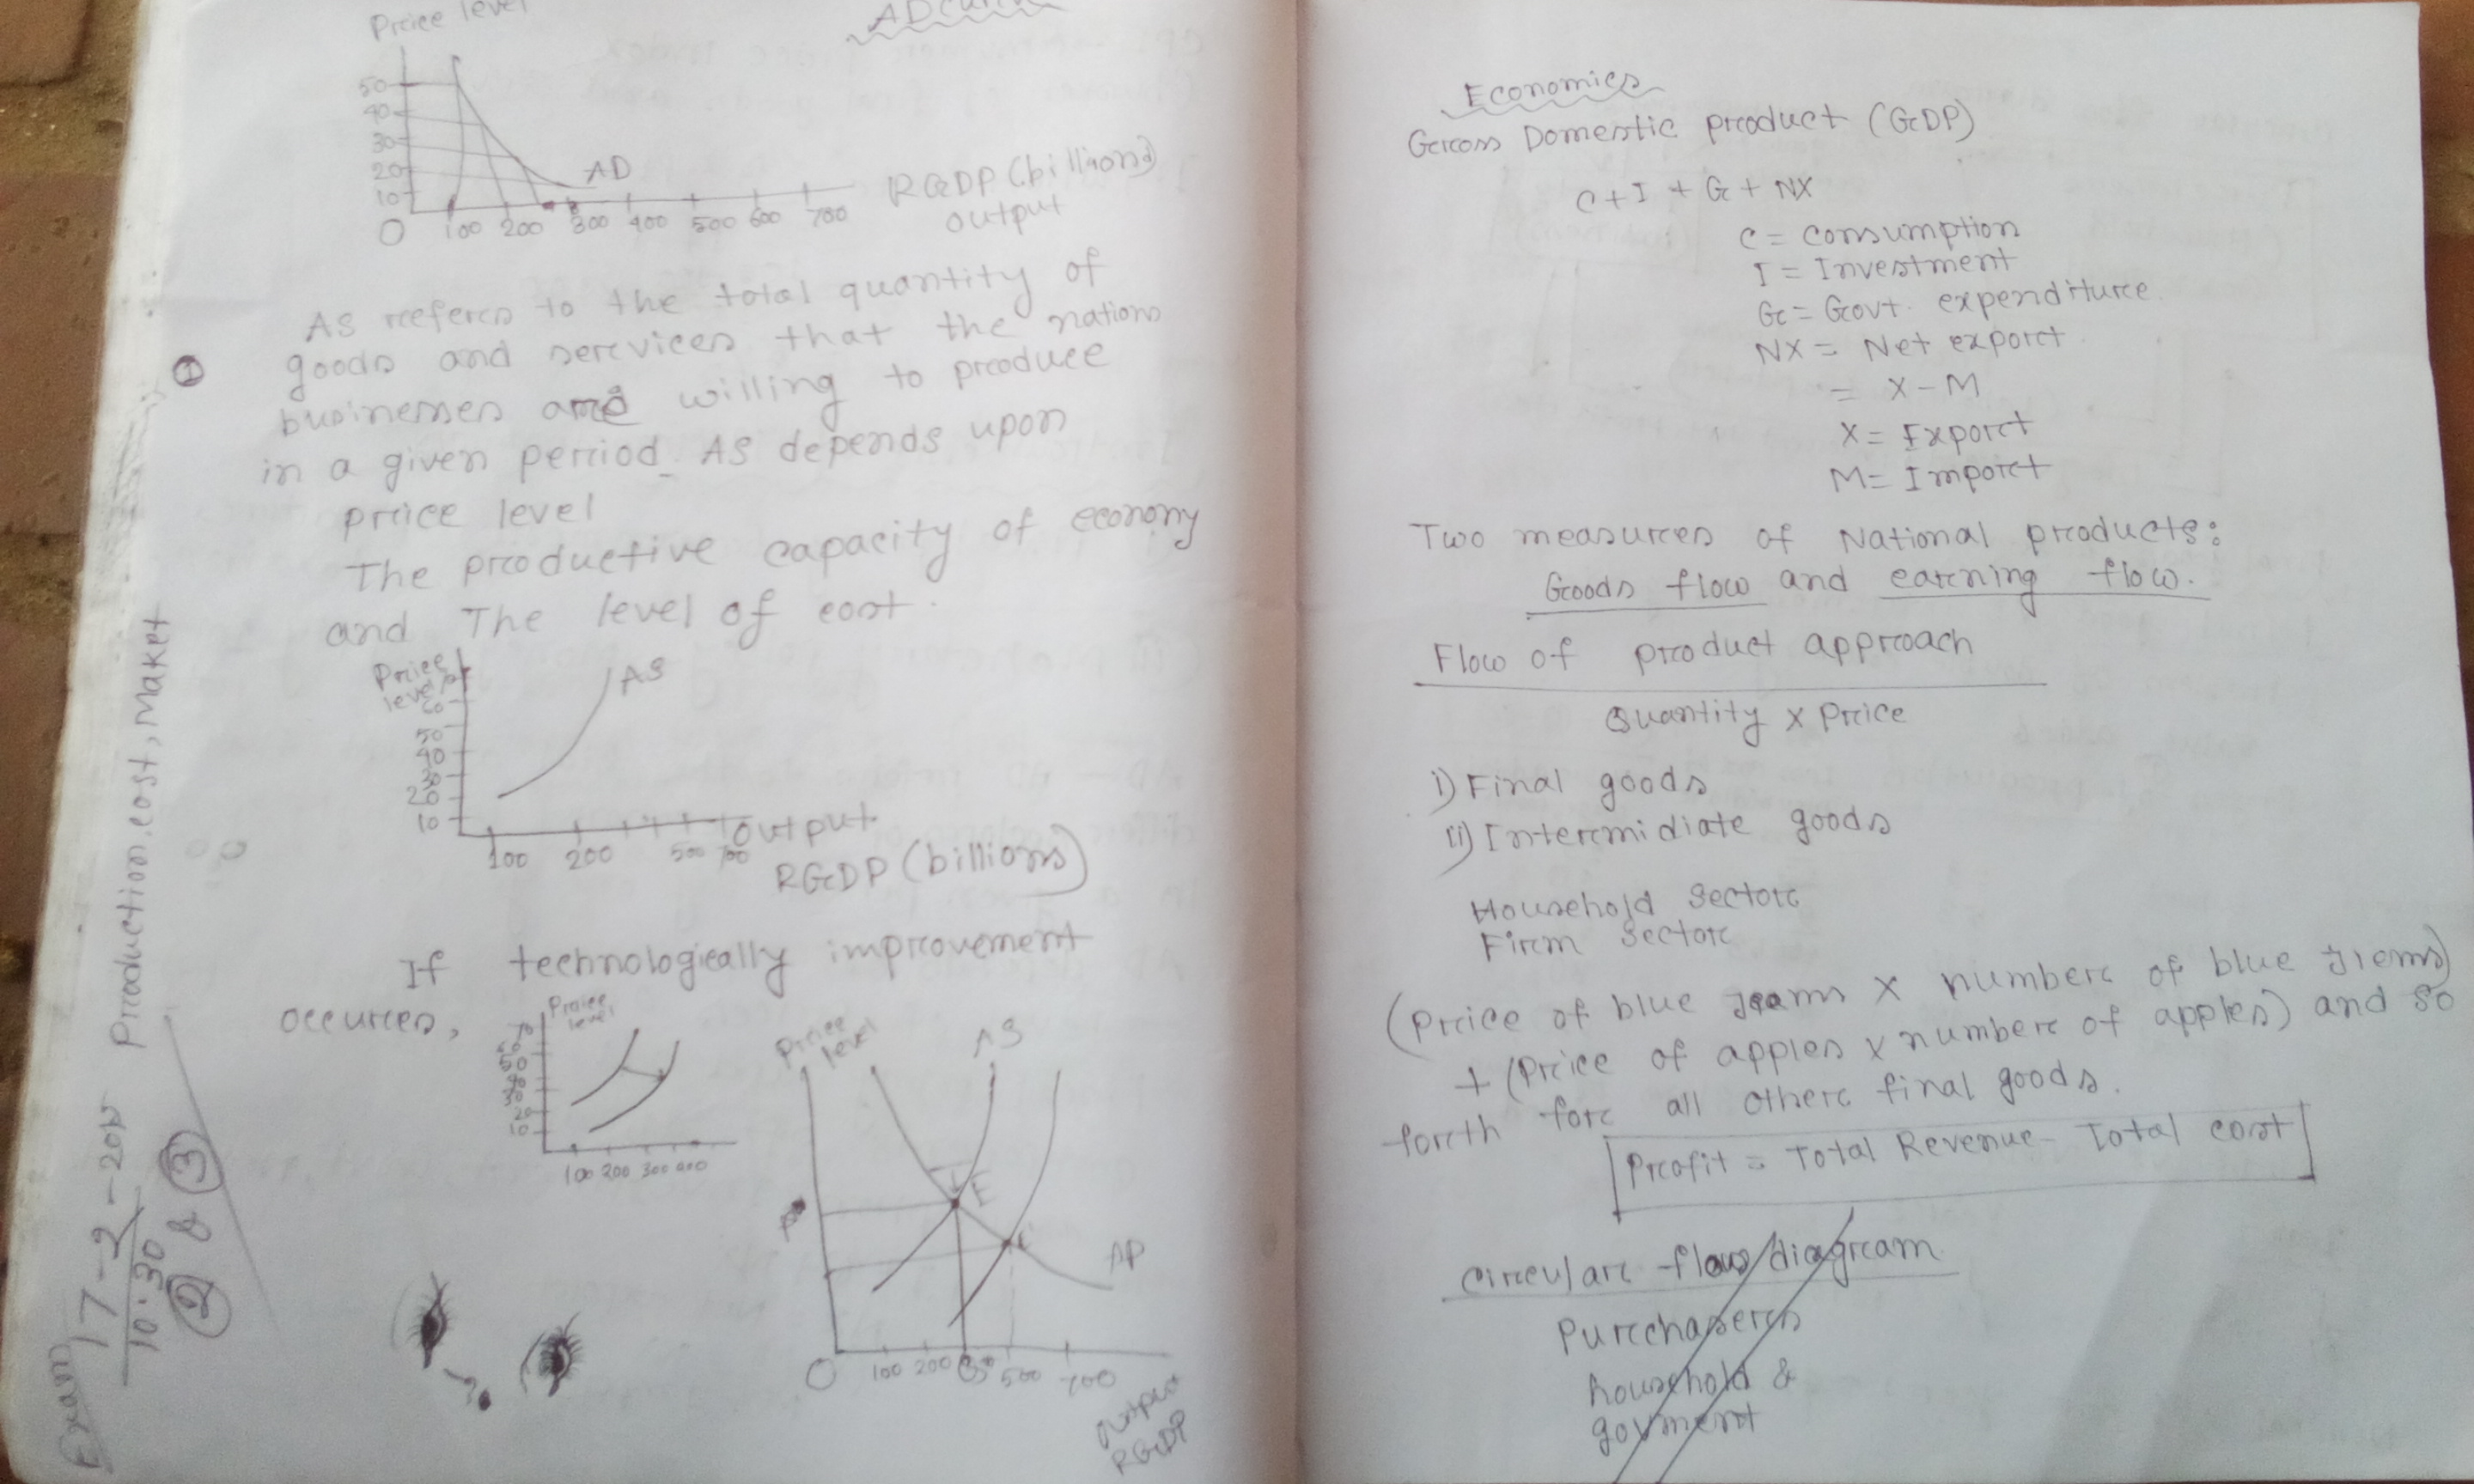 Price level
AD curve
50
40
30
20
10
AD
0 100 200 300 400 500 600 700
RGDP (billions)
output
AS refers to the total quantity of
goods and services that the nations
businesses are willing to produce
in a given period. AS depends upon
price level
The productive capacity of economy
and The level of cost.
Price
level
AS
60
50
40
30
20
10
100 200 500 700
output
RGDP (billions)
If technologically improvement
occures,
Price
level
70
60
50
40
30
20
10
100 200 300 400
Price
level
AS
E
AD
0 100 200 500 700
output
RGDP
Production, cost, Market
Exam
17-2-
10.30
2 & 3
Economics
Gross Domestic product (GDP)
C + I + G + NX
C = consumption
I = Investment
G = Govt. expenditure.
NX = Net export
= X - M
X = Export
M = Import
Two measures of National products:
Goods flow and earning flow.
Flow of product approach
Quantity x Price
i) Final goods
ii) Intermidiate goods
Household Sector
Firm Sector
(Price of blue x number of blue
+ (Price of apples x number of apples) and so
forth for all other final goods.
Profit = Total Revenue - Total cost
circular flow diagram
Purchasers
household &
govment